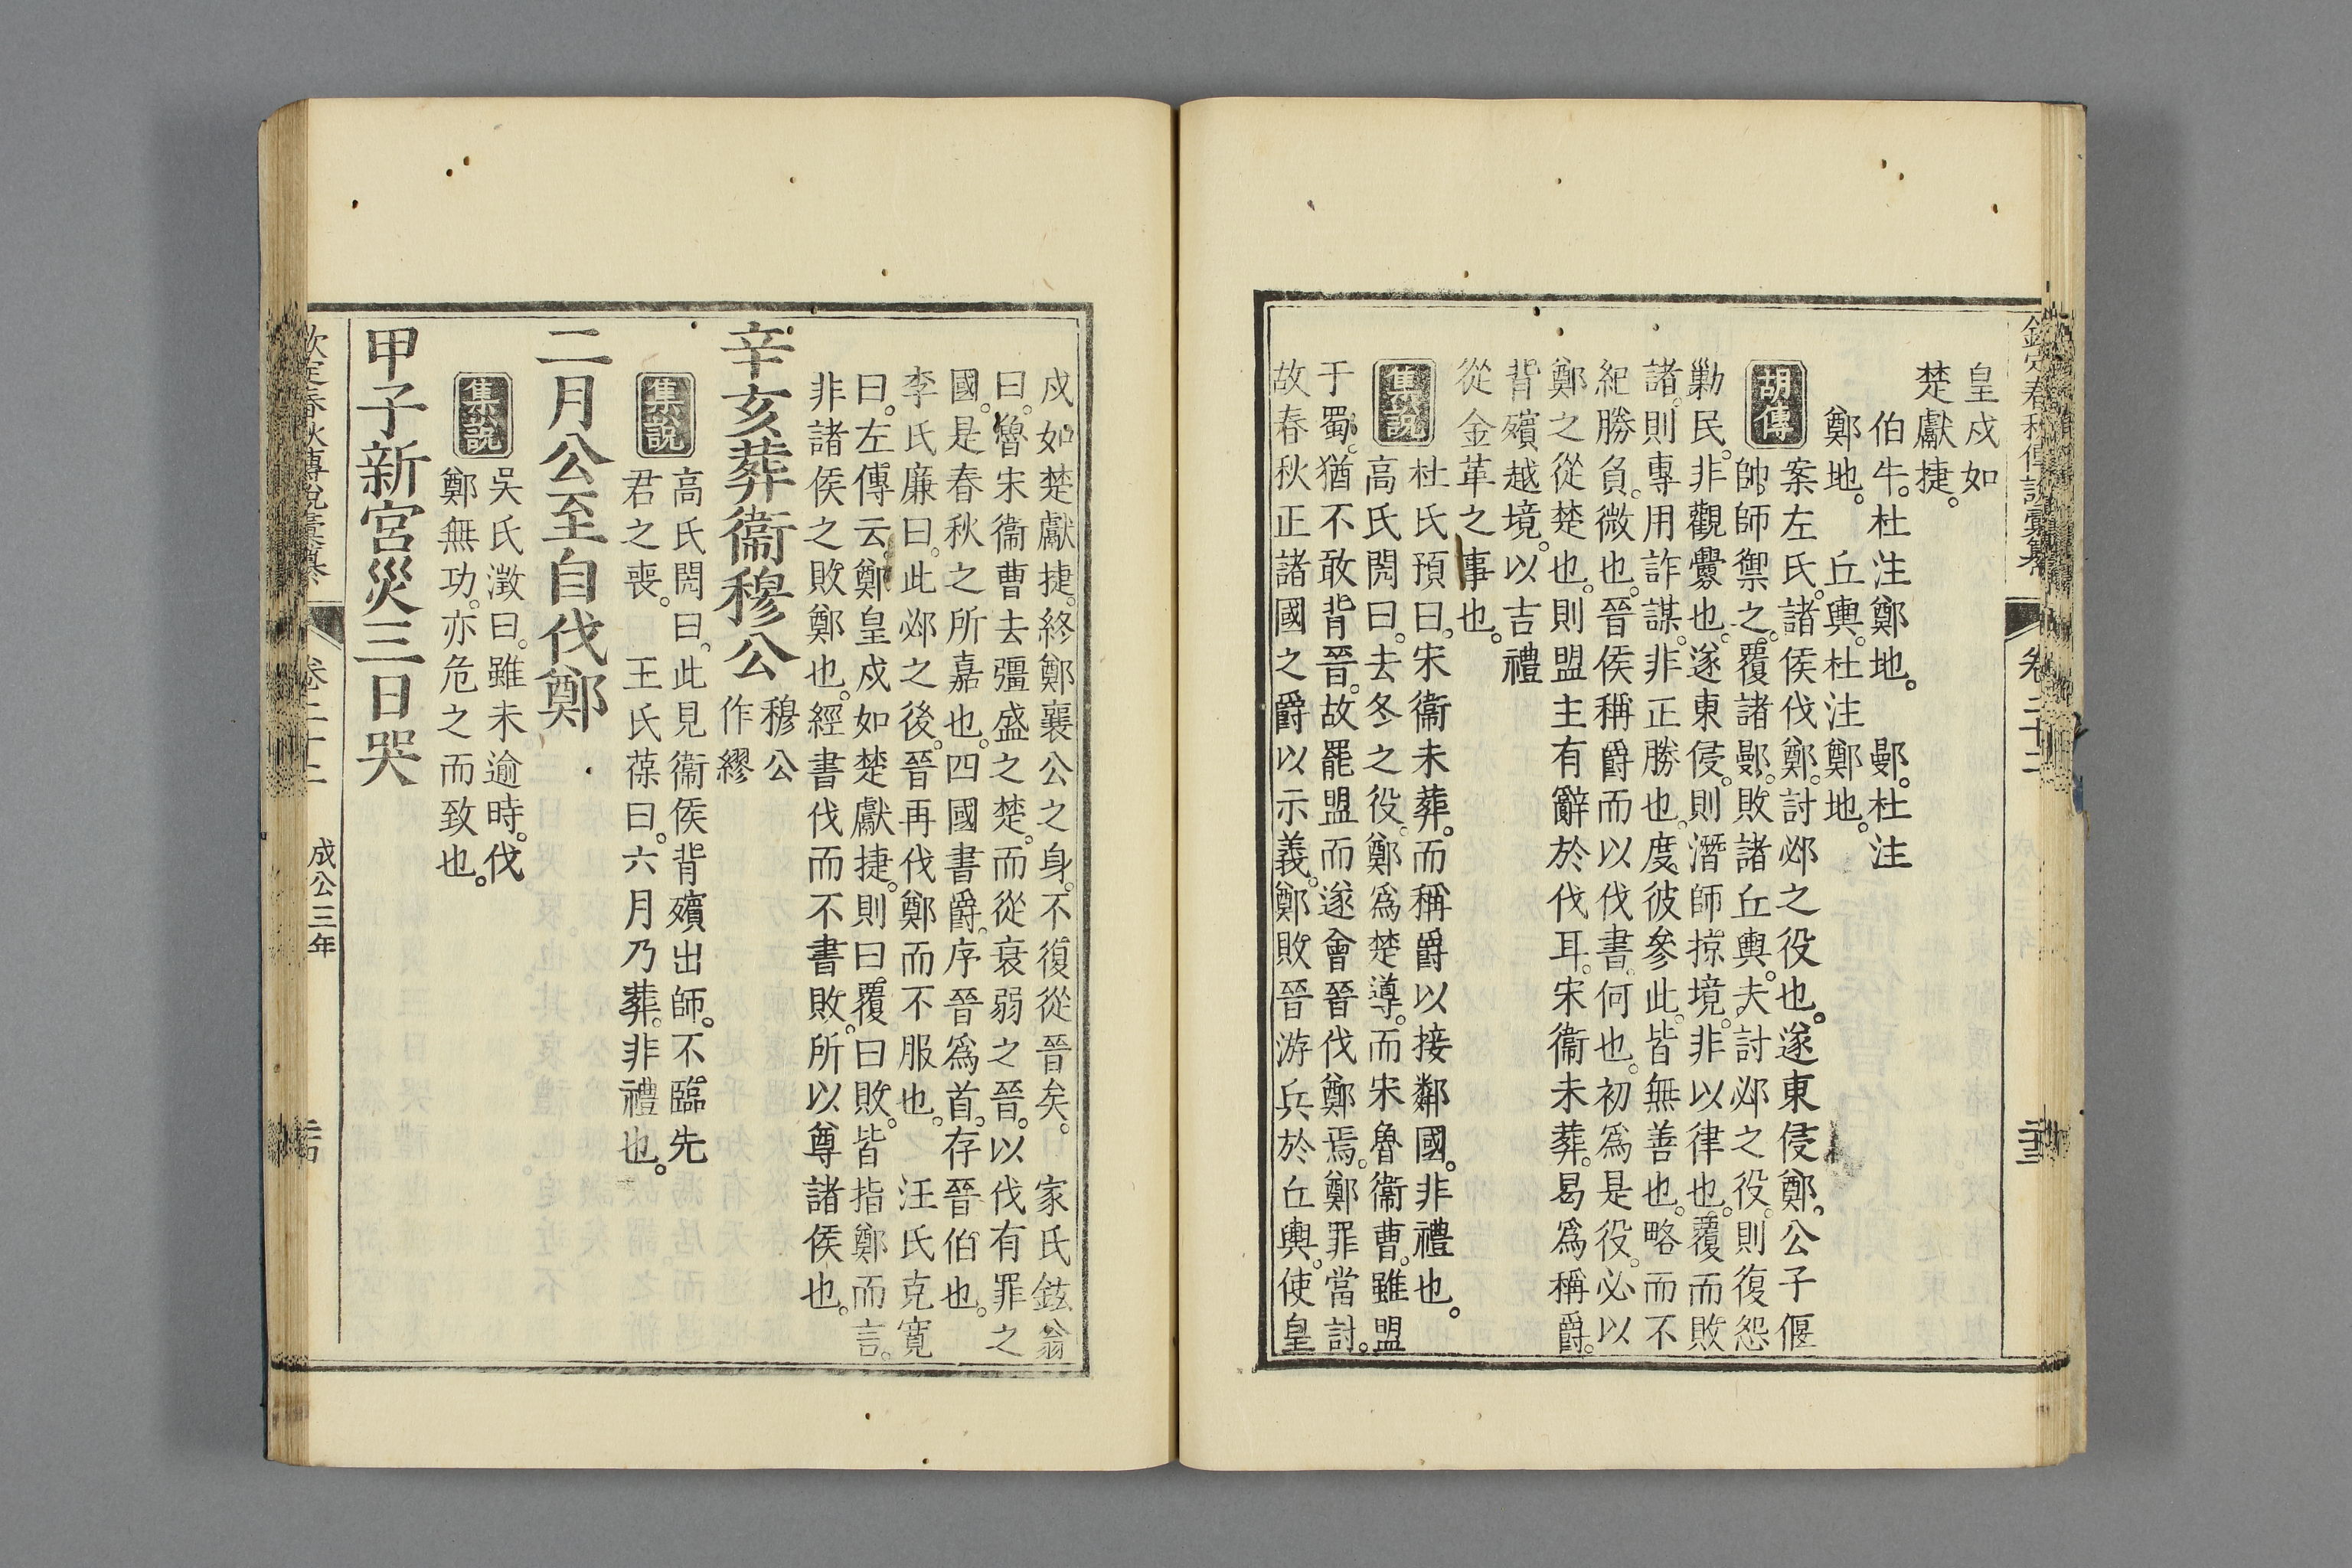 欽定春秋傳說彙纂
卷二十二
皇戍如
楚獻捷。
伯牛。杜注鄭地。　鄤。杜注
鄭地。　丘輿。杜注鄭地。
胡傳
案左氏。諸侯伐鄭。討邲之役也。遂東侵鄭。公子偃
帥師禦之。覆諸鄤。敗諸丘輿。夫討邲之役。則復怨
勦民。非觀釁也。遂東侵。則潛師掠境。非以律也。覆而敗
諸。則專用詐謀。非正勝也。度彼參此。皆無善也。略而不
紀勝負。微也。晉侯稱爵而以伐書何也。初爲是役。必以
鄭之從楚也。則盟主有辭於伐耳。宋衞未葬。曷爲稱爵。
背殯越境。以吉禮
從金革之事也。
集說
杜氏預曰。宋衞未葬。而稱爵以接鄰國。非禮也。
高氏閌曰。去冬之役。鄭爲楚導。而宋魯衞曹。雖盟
于蜀。猶不敢背晉。故罷盟而遂會晉伐鄭焉。鄭罪當討。
故春秋正諸國之爵以示義。鄭敗晉游兵於丘輿。使皇
戍如楚獻捷。終鄭襄公之身。不復從晉矣。　家氏鉉翁
曰。魯宋衞曹去彊盛之楚。而從衰弱之晉。以伐有罪之
國。是春秋之所嘉也。四國書爵。序晉爲首。存晉伯也。
李氏廉曰。此邲之後。晉再伐鄭而不服也。　汪氏克寬
曰。左傳云。鄭皇戍如楚獻捷。則曰。覆曰敗。皆指鄭而言。
非諸侯之敗鄭也。經書伐而不書敗。所以尊諸侯也。
辛亥葬衞穆公
穆公
作繆
集說
高氏閌曰。此見衞侯背殯出師。不臨先
君之喪。　王氏葆曰。六月乃葬。非禮也。
二月公至自伐鄭
集說
吳氏澂曰。雖未逾時。伐
鄭無功。亦危之而致也。
甲子新宮災三日哭
欽定春秋傳說彙纂
卷二十二
成公三年